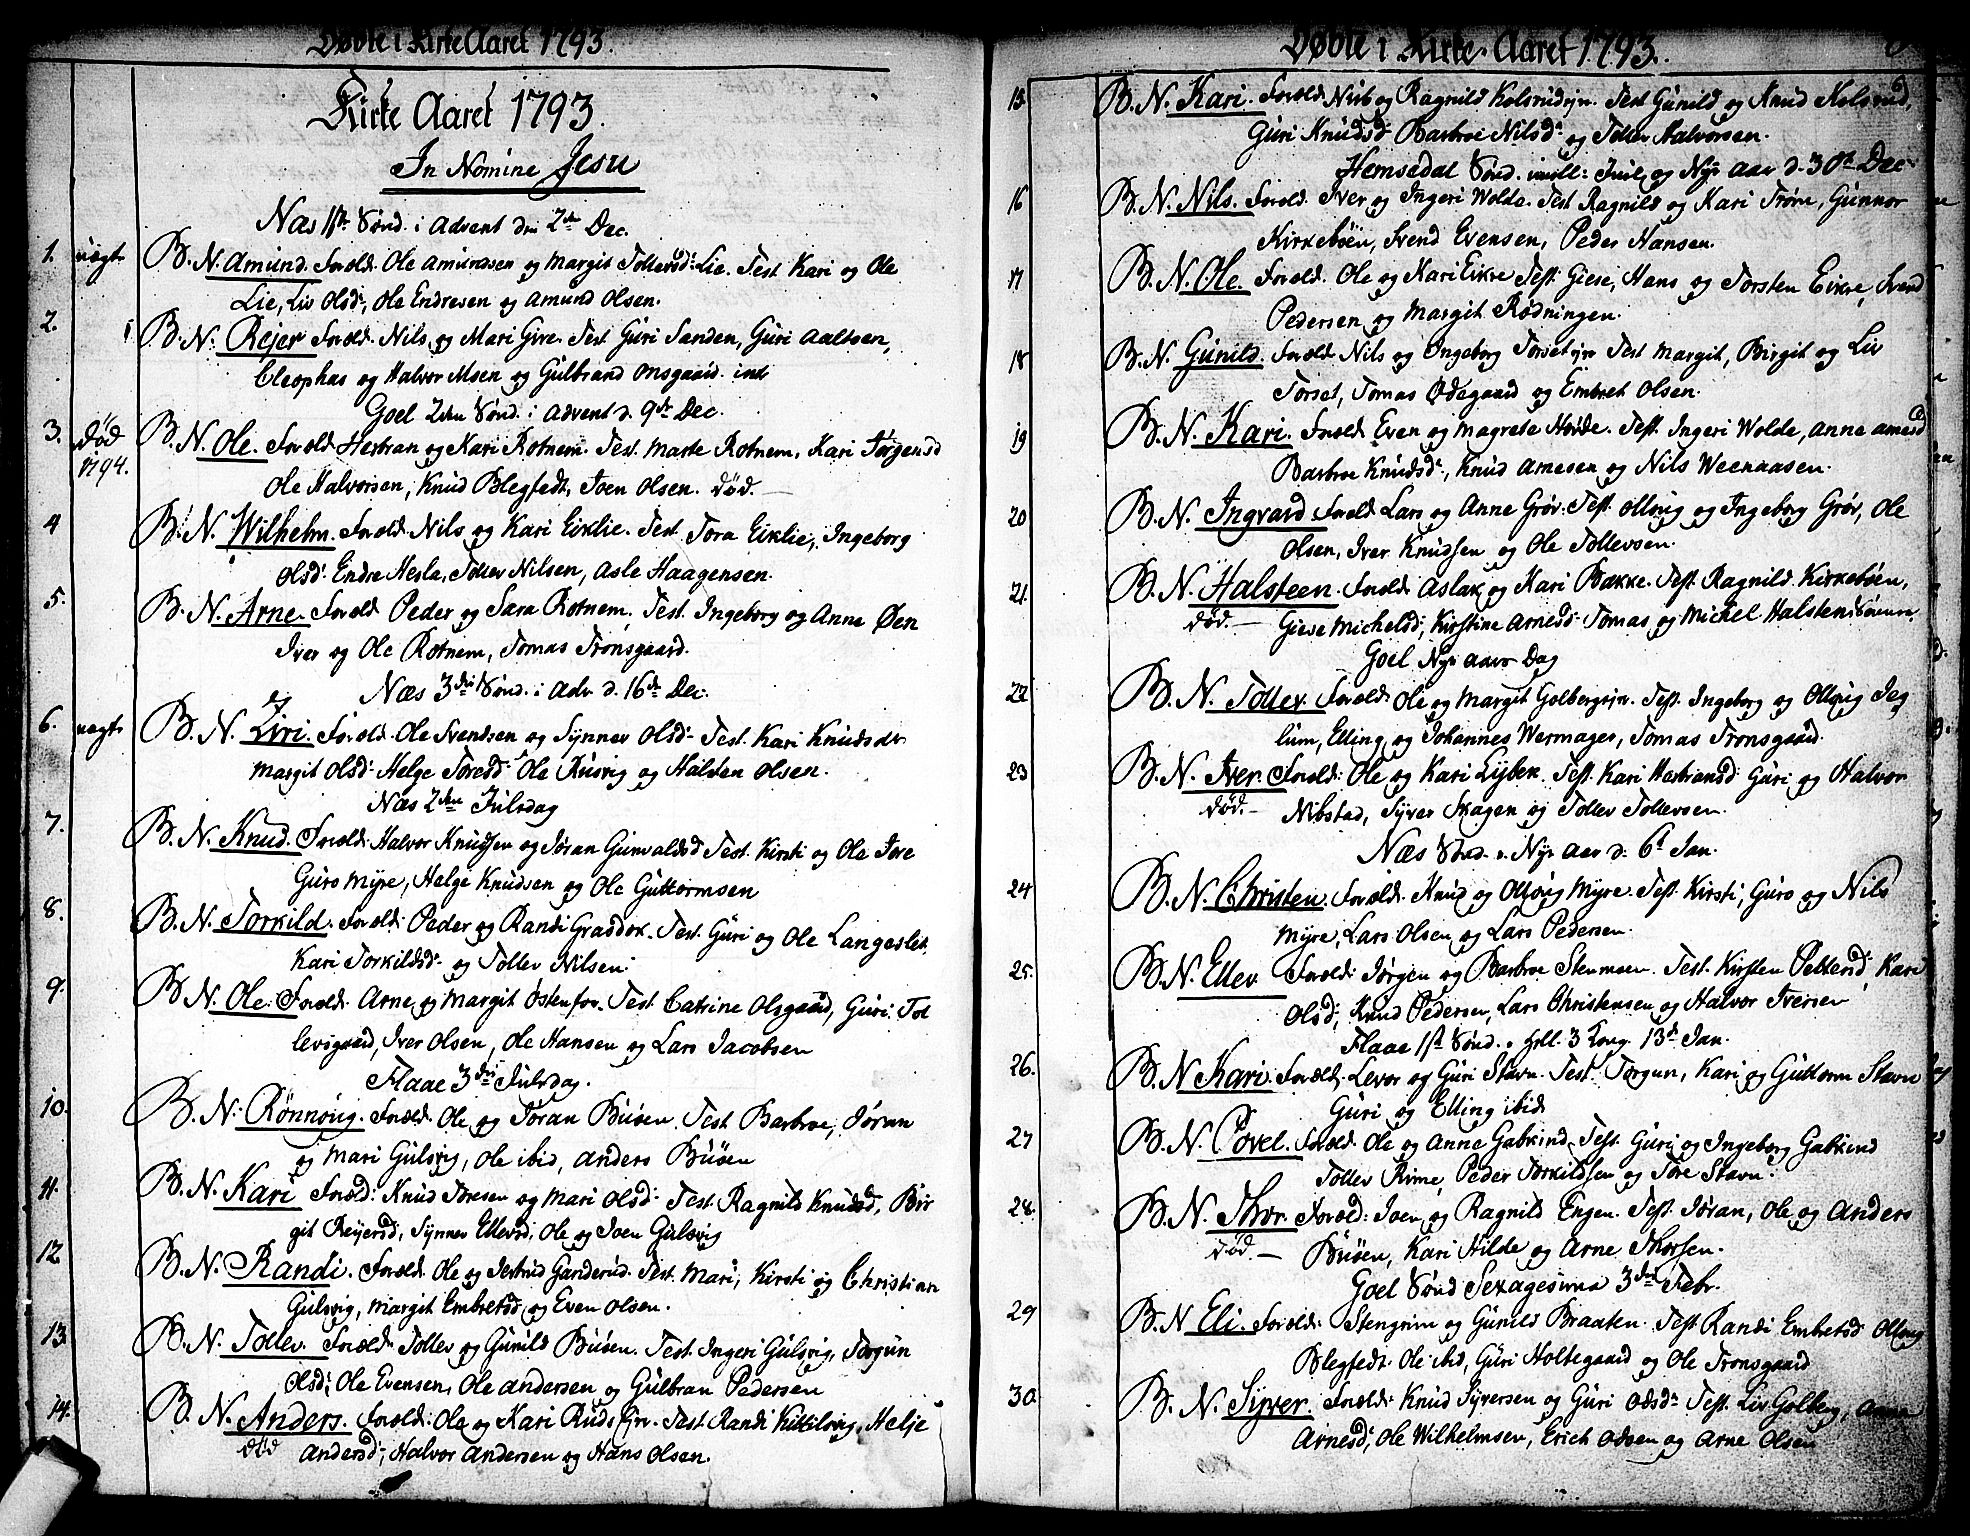 Døbte i Kirke Aaret 1793.
Kirke Aaret 1793.
In Nomine Jesu
Næs 1ste Sønd. i Advent den 2den Dec.
1. uægte B. N. Amund. Foræld. Ole Amundsen og Margit Tollevsd: Lie. Test. Kari og Ole
Lie, Liv Olsd:, Ole Endresen og Amund Olsen.
2. B. N. Rejer Foræld. Nils og Mari Gire. Test Guri Sanden, Guri Aaltsen,
Cleophas og Halvor Moen og Gulbrand Onsgaard.
Goel 2den Sønd. i Advent d. 9de Dec.
3. død 1794. B. N. Ole. Foræld Herbran og Kari Rotnem. Test. Marte Rotnem, Kari Jørgensd
Ole Halvorsen, Knud Blegfedt, Joen Olsen. død.
4 B. N. Wilhelm. Foræld. Nils og Kari Eiklie. Test Tora Eiklie, Ingeborg
Olsd: Endre Hesla, Tollev Nilsen, Asle Haagensen.
5. B. N. Arne. Foræld Peder og Sara Rotnem. Test. Ingeborg og Anne Øen
Iver og Ole Rotnem, Tomas Tronsgaard.
Næs 3die Sønd. i Adv. d. 16de Dec.
6. uægte B. N. Siri. Foræld. Ole Svendsen og Synnev Olsd: Test. Kari Knudsdr
Margit Olsd: Helge Toresd: Ole Rusvig og Halsten Olsen.
Næs 2den Julsdag
7. B. N. Knud. Foræld: Halvor Knudsen og Jøran Gunvaldsd Test. Kirsti og Ole Jore
Guro Myre, Helge Knudsen og Ole Guttormsen
8. B. N. Torkild. Foræld: Peder og Randi Graddok. Test. Guri og Ole Langeslet,
Kari Torkildsd: og Tollev Nilsen.
9. B. N. Ole. Foræld. Arne og Margit Østenfor. Test Catrine Olsgaard, Guri Tol
levsgaard, Iver Olsen, Ole Hansen og Lars Jacobsen
Flaae 3die Julsdag.
10. B. N. Rønnoug. Foræld. Ole og Jøran Buøen. Test. Barbroe, Jøran
og Mari Gulsvig, Ole ibid, Anders Buøen
11. B. N. Kari Foræld: Knud Toresen og Mari Olsd: Test. Ragnild Knudsd, Bir
git Reyersd, Synnev Ellevsd, Ole og Joen Gulsvig
12. B. N. Randi. Foræld. Ole og Jertrud Ganderud. Test. Mari, Kirsti og Christian
Gulsvig, Margit Embretsd, og Even Olsen.
13. B. N. Tollev. Foræld: Tollev og Gunild Buøen. Test. Ingeri Gulsvig, Torgun
Olsd: Ole Evensen, Ole Andersen og Gulbran Pedersen
14. B. N. Anders. Foræld: Ole og Kari Ruds Ejer. Test. Randi Kittilsvig, Helje
død Andersd: Halvor Andersen og Hans Olsen.
Døbte i Kirke Aaret 1793.
15. B. N. Kari. Foræld Nils og Ragnild Kolsrudejer. Test Gunild og Knud Kolsrud,
Guri Knudsd: Barbroe Nilsd: og Tollev Halvorsen.
Hemsedal Sønd. imell: Juul og Nyt Aar d. 30te Dec:
16 B. N. Nils. Foræld. Iver og Ingeri Wolda. Test. Ragnild og Kari Trøim, Gunnor
Kirkebøen, Svend Evensen, Peder Hansen.
17 B. N. Ole. Foræld. Ole og Kari Eikre Test. Giese, Hans og Torsten Eikre, Svend
Pedersen og Margit Rødningen.
18 B. N. Gunild. Foræld Nils og Ingeborg Torsetejer Test Margit, Birgit og Liv
Torset, Tomas Ødegaard og Embret Olsen.
19 B. N. Kari. Foræld Even og Magrete Horde. Test. Ingeri Wolde, Anne Arnesd
Barbroe Knudsd:, Knud Arnesen og Nils Weenaasen.
20 B. N. Ingvard Foræld Lars og Anne Grøv. Test. Olloug og Ingeborg Grøv, Ole
Olsen, Iver Knudsen og Ole Tollevsen.
21. B. N. Halsteen. Foræld: Aslak og Kari Bække. Test. Ragnild Kirkebøen,
død. Giese Michelsd, Kirstine Arnesd: Tomas og Michel Halstensbøen.
Goel Nyt Aars Dag
22 B. N. Tollev. Foræld: Ole og Margit Golbergejer. Test. Ingeborg og Olloug Jeg
lum, Elling og Johannes Wermager, Tomas Tronsgaard.
23 B. N. Iver. Foræld: Ole og Kari Lybek. Test. Kari Herbransd Guri og Halvor
død. Nibstad, Syver Skagen og Tollev Tollevsen.
Næs Sønd. e. Nyt Aar d. 6te Jan.
24 B. N. Christen. Foræld: Knud og Olloug Myre. Test. Kirsti, Guro og Nils
Myre, Lars Olsen og Lars Pedersen.
25. B. N. Ellev Foræld: Jørgen og Barbroe Stenmoen. Test. Kirsten Pettersd, Kari
Olsd, Knud Pedersen, Lars Christensen og Halvor Iversen
Flaae 1ste Sønd. e Hell. 3 Kong. 13de Jan.
26. B. N. Kari. Foræld: Levor og Guri Stavn. Test. Torgun, Kari og Guttorm Stavn
Guri og Elling ibid
27 B. N. Povel. Foræld. Ole og Anne Gabkind. Test. Guri og Ingeborg Gabkind
Tollev Rime, Peder Torkildsen og Tore Stavn.
28. B. N. Thor. Foræld: Joen og Ragnild Engen. Test. Jøran, Ole og Anders
død. Buøen, Kari Hilde og Arne Thorsen.
Goel Sønd Sexagesima 3die Febr.
29 B. N. Eli. Foræld: Stengrim og Gunild Braaten. Test Randi Embretsd Olloug
Blegfedt. Ole ibid, Guri Holtegaard og Ole Tronsgaard
30. B. N. Syver. Foræld: Knud Syversen og Guri Odsd: Test. Liv Golberg, Anne
Arnesd, Ole Wilhelmsen, Erich Odsen og Arne Olsen